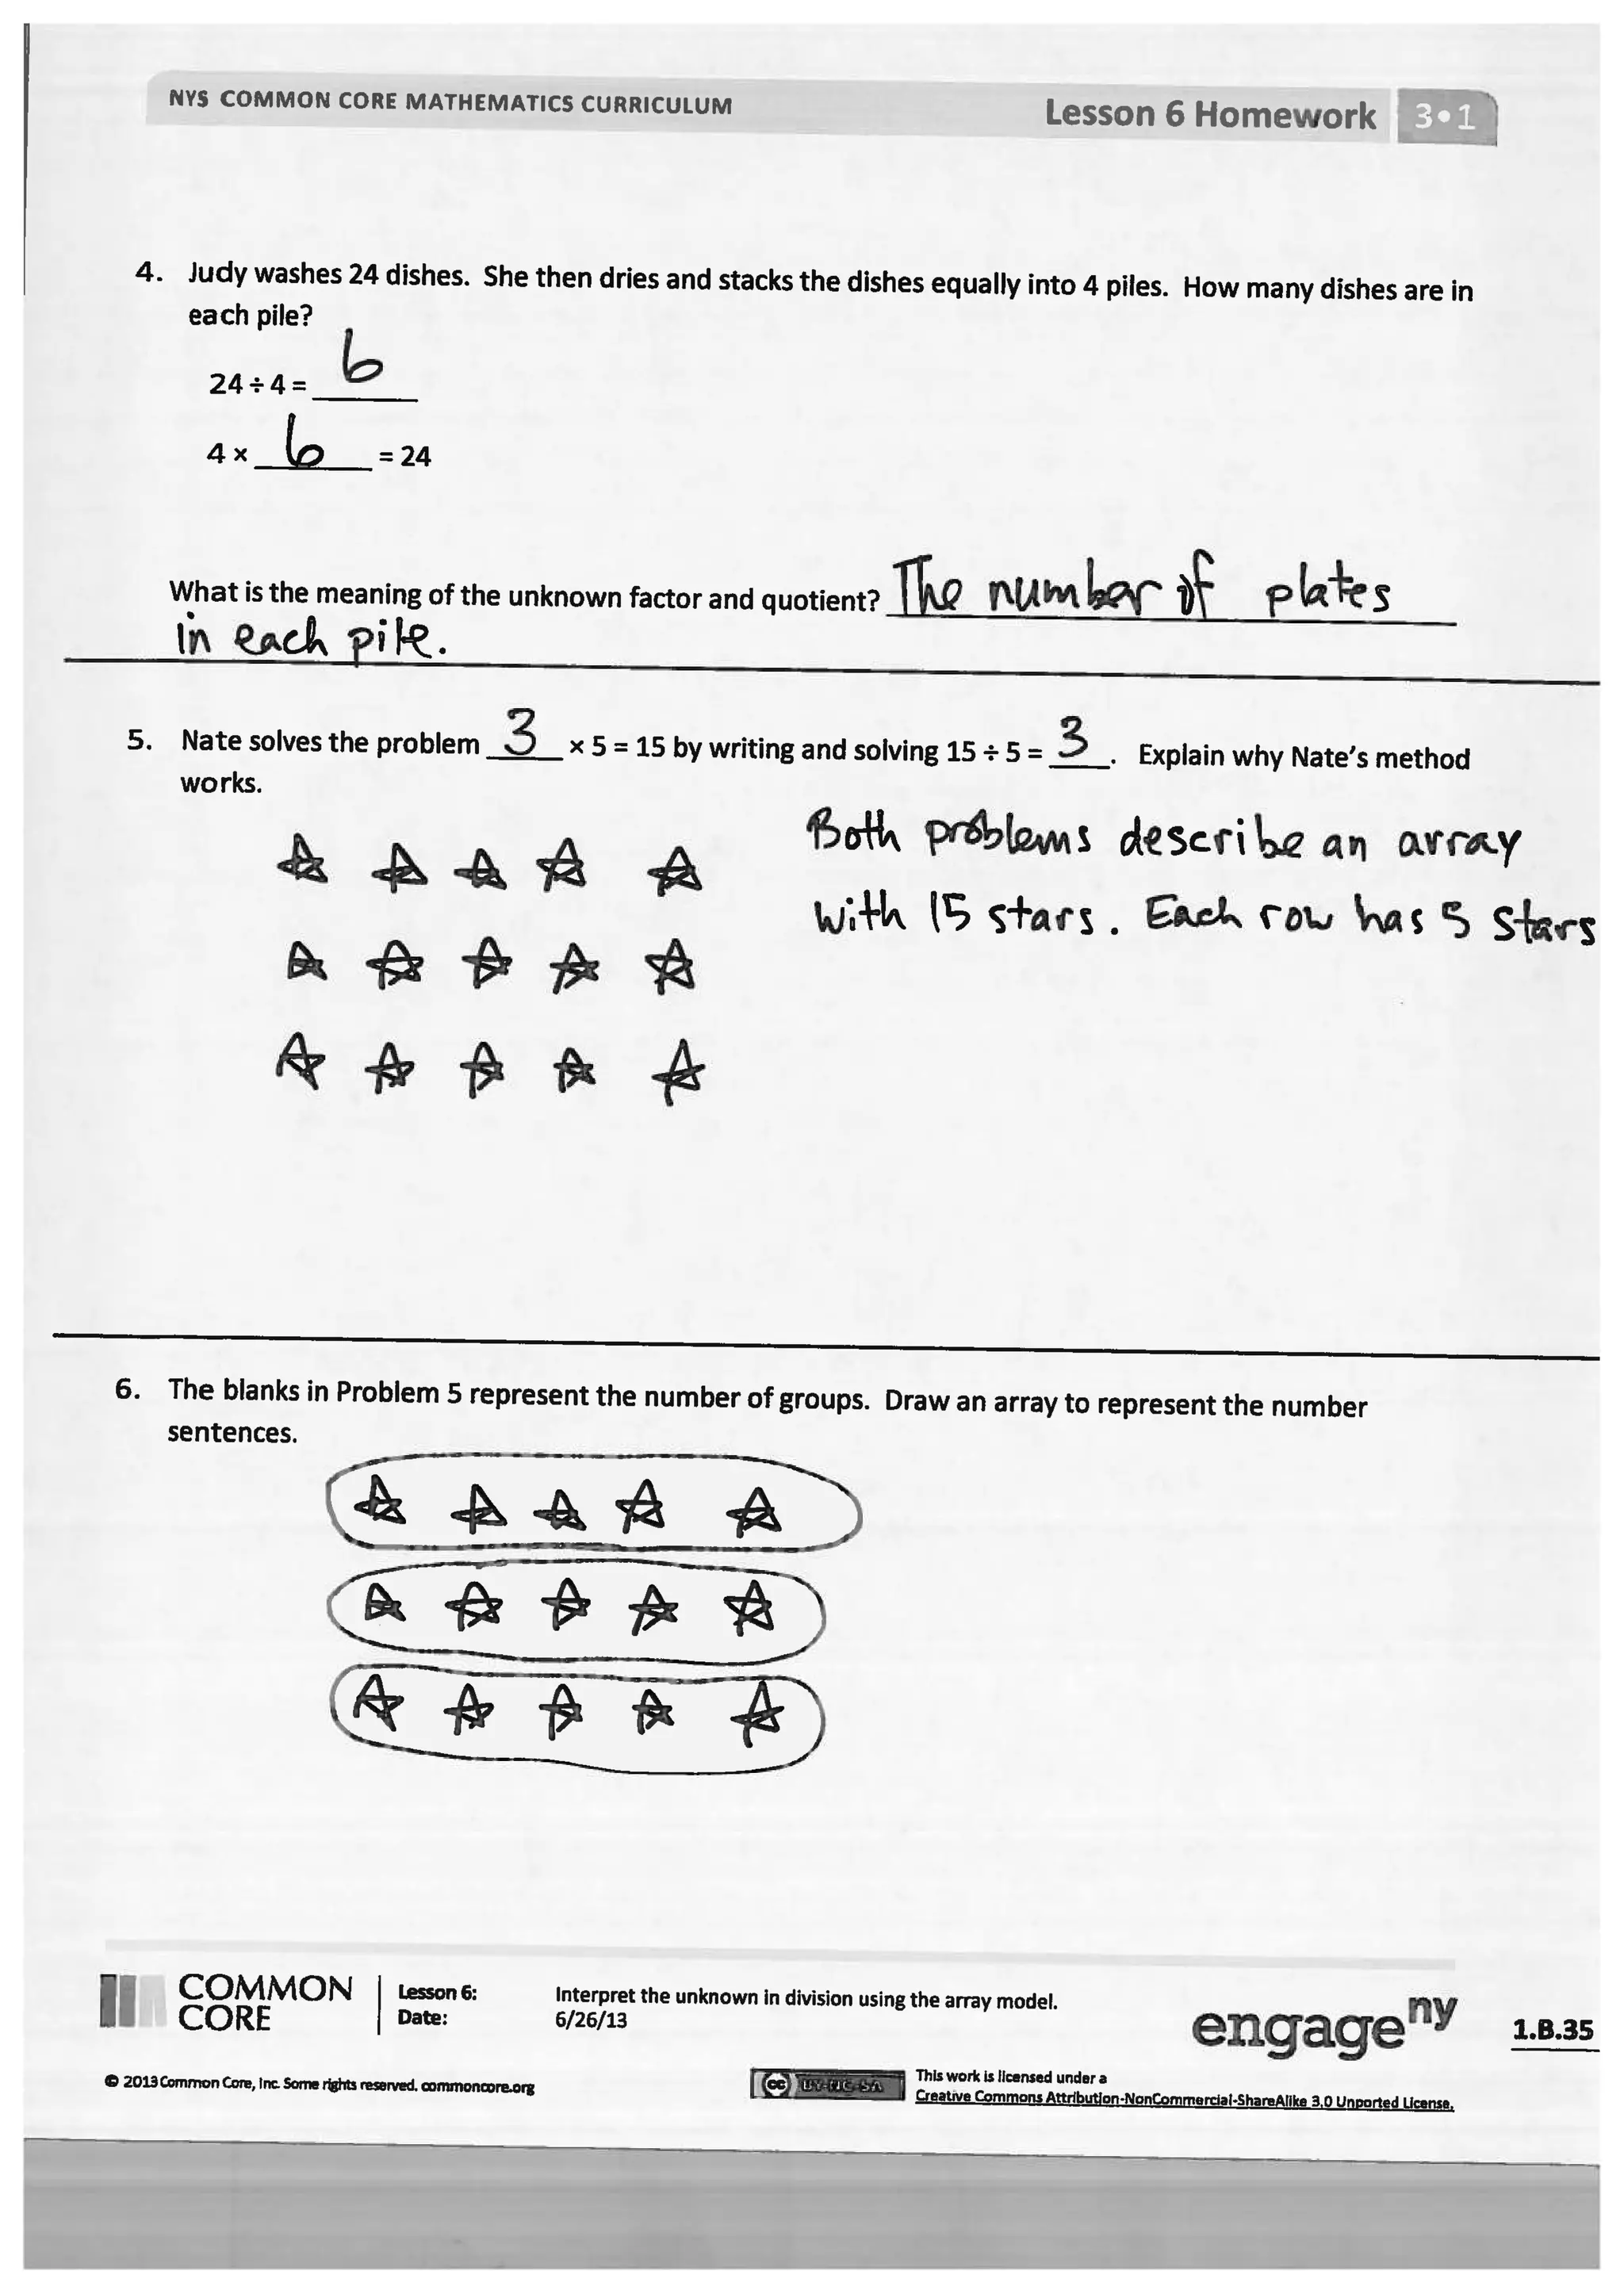 NYS COMMON CORE MATHEMATICS CURRICULUM
Lesson 6 Homework 3•1
4. Judy washes 24 dishes. She then dries and stacks the dishes equally into 4 piles. How many dishes are in
each pile?
24 ÷ 4 = 6
4 × 6 = 24
What is the meaning of the unknown factor and quotient? The number of plates
in each pile.
5. Nate solves the problem 3 × 5 = 15 by writing and solving 15 ÷ 5 = 3. Explain why Nate's method
works.
Both problems describe an array
with 15 stars. Each row has 5 stars
6. The blanks in Problem 5 represent the number of groups. Draw an array to represent the number
sentences.
COMMON
CORE
Lesson 6: Interpret the unknown in division using the array model.
Date: 6/26/13
engage ny
1.B.35
© 2013 Common Core, Inc. Some rights reserved. commoncore.org
cc BY-NC-SA
This work is licensed under a
Creative Commons Attribution-NonCommercial-ShareAlike 3.0 Unported License.